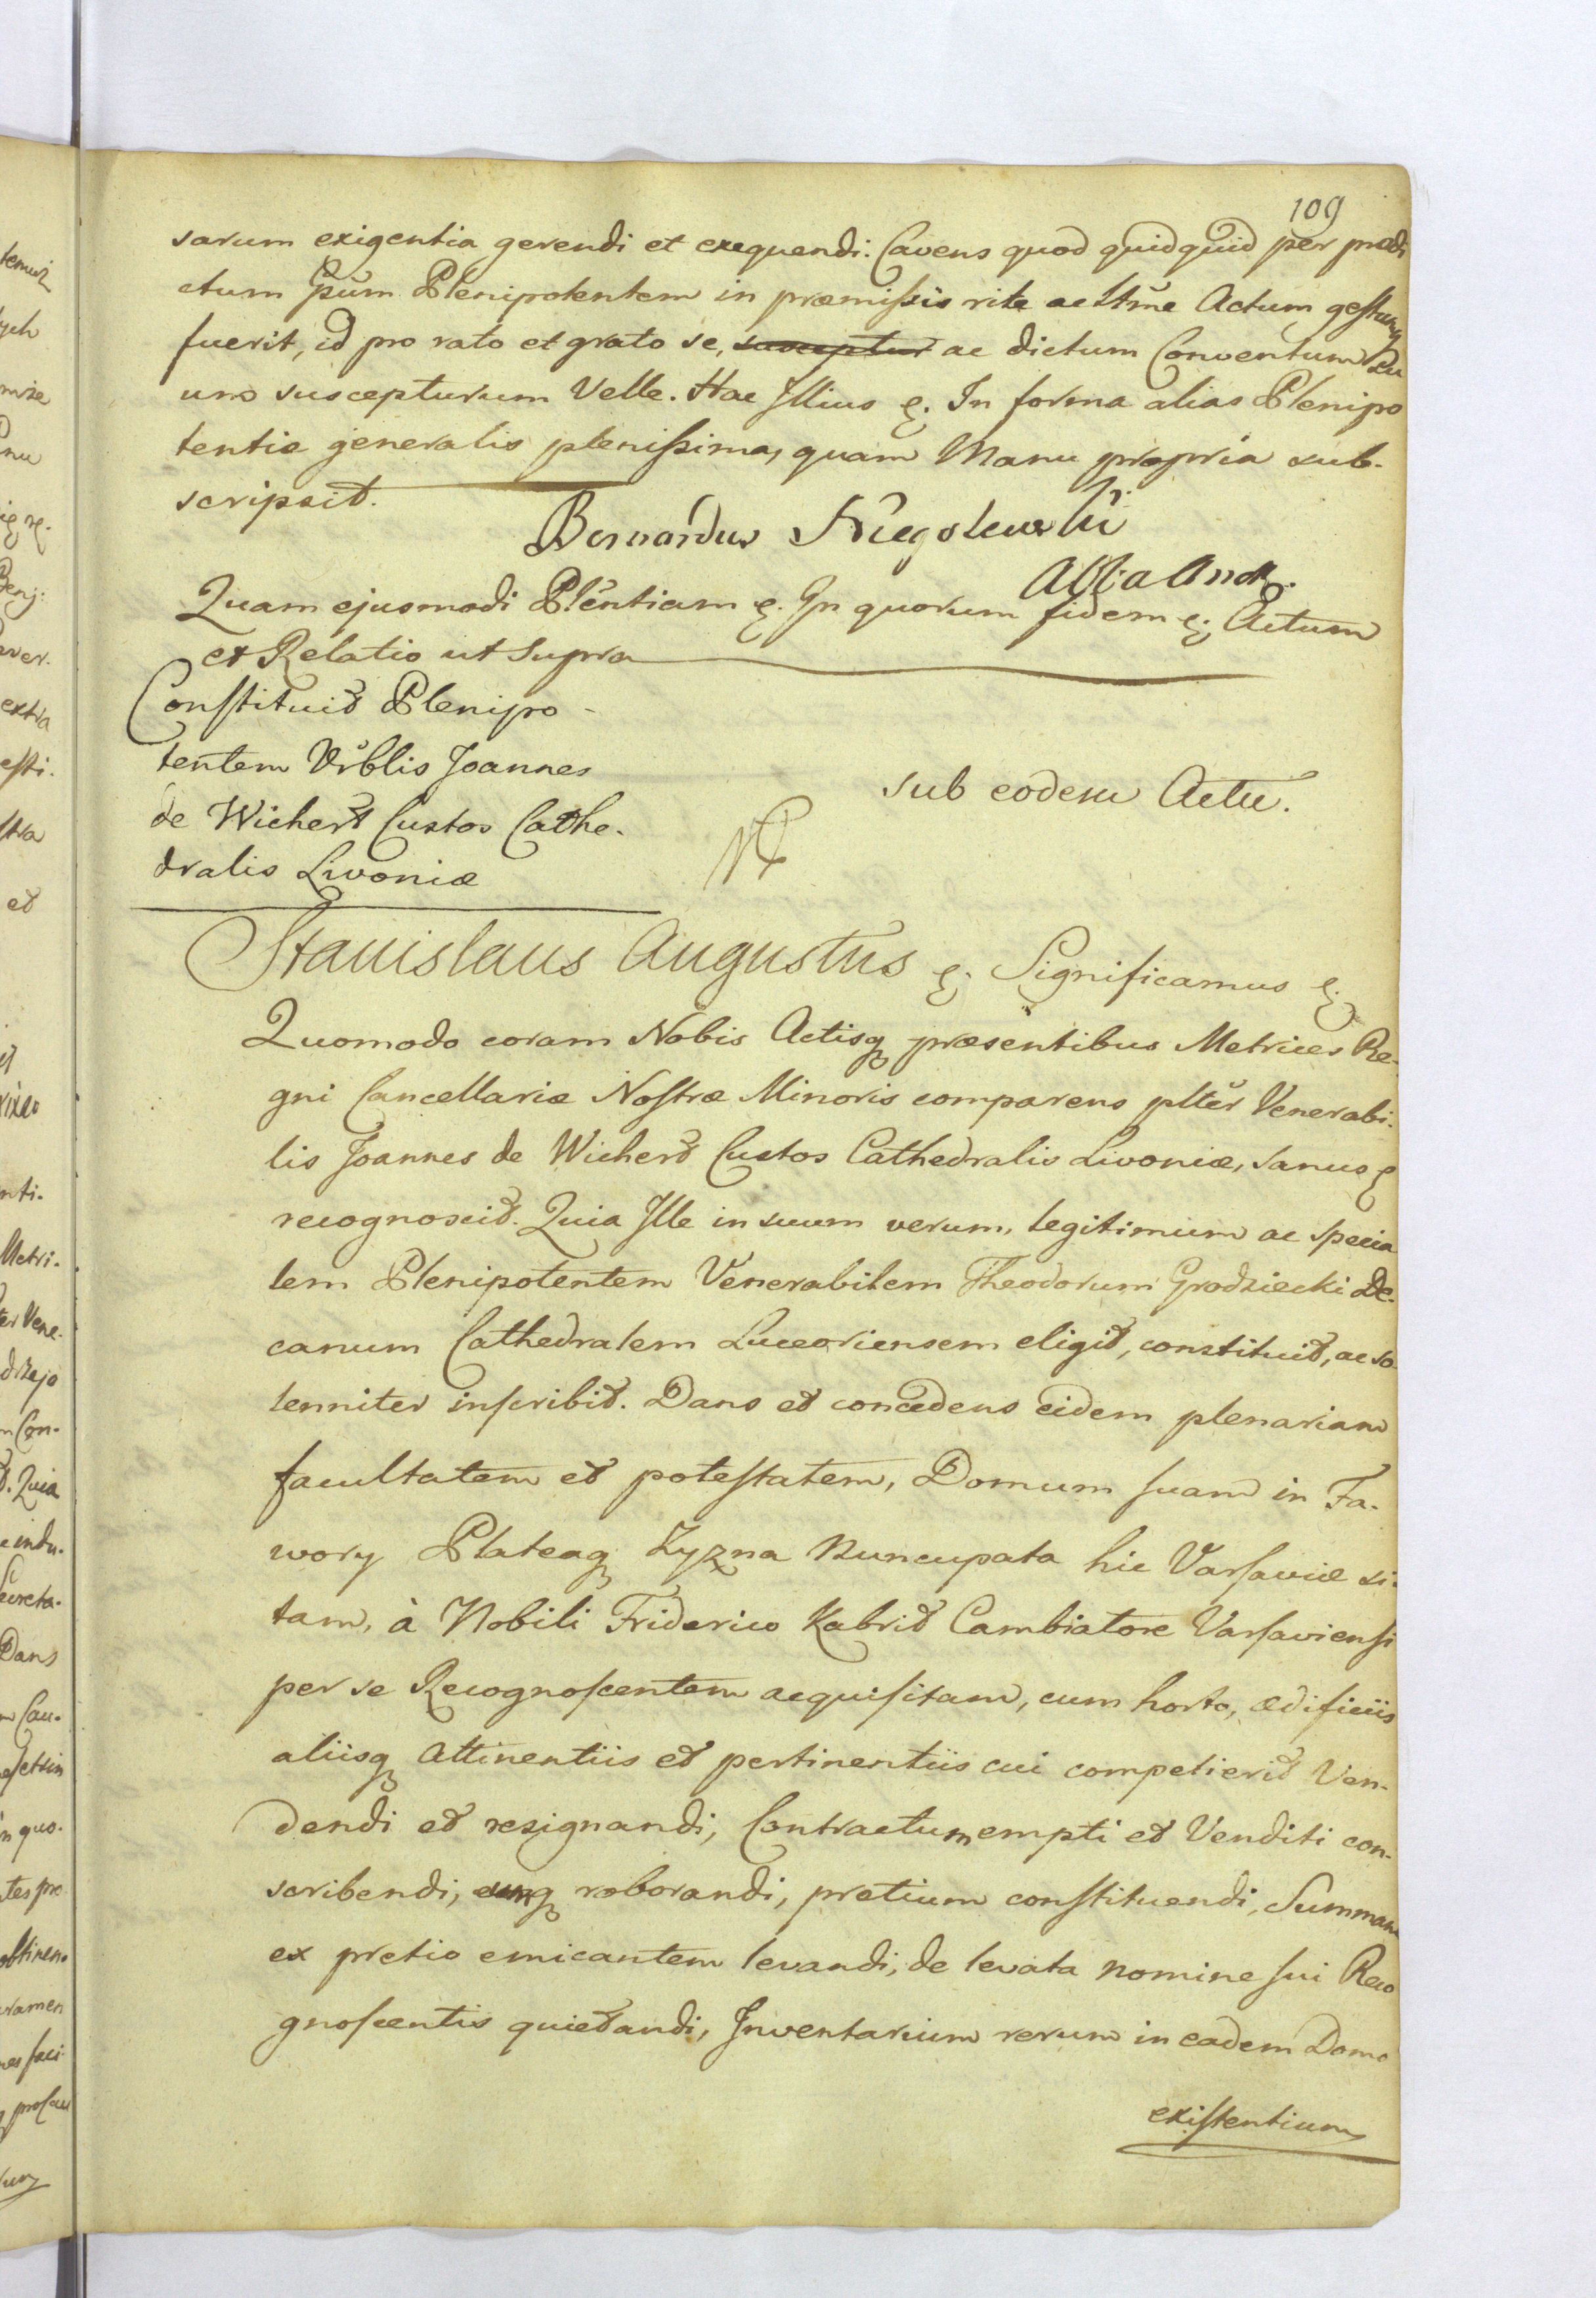 109
sarum exigentia gerendi et exequendi. Cavens quod quidquid per prædi
ctum sũm Plenipotentem in præmissis rite ac lttme Actum gestum
fuerit, id pro rato et grato se, suscepturũ ac dictum Conventum Su
um suscepturum Velle. Hac Illius &. In forma alias Plenipo
tentiæ generalis plenissima, quam Manu propria sub-
scripsit.
Bernardus Niegolewski
Abba And.
Quam ejusmodi Plentiam &. In quorum fidem &. Actum
et Relatio ut supra
Constituit Plenipo-
tentem Vrblis Joannes
de Wichert Custos Cathe-
dralis Livoniæ
sub eodem Actu.
Stanislaus Augustus &. Significamus &.
Quomodo coram Nobis Actisq præsentibus Metrices Re-
gni Cancellariæ Nostræ Minoris comparens plter Venerabi-
lis Joannes de Wichert Custos Cathedralis Livoniæ, sanus &
recognoscit. Quia Ille in suum verum, legitimum ac specia
lem Plenipotentem Venerabilem Theodorum Grodziecki De-
canum Cathedralem Luceoriensem eligit, constituit, ac so-
lenniter inscribit. Dans et concedens eidem plenariam
facultatem et potestatem, Domum suam in Fa-
wory Plateaq Zyzna Nuncupata hic Varsaviæ si-
tam, à Nobili Friderico Kabrit Cambiatore Varsaviensi
per se Recognoscentem acquisitam, cum horto, ædificiis
aliisq Attinentiis et pertinentiis cui competierit Ven-
dendi et resignandi, Contractum empti et Venditi con-
scribendi, eumq roborandi, pretium constituendi, Summam
ex pretio emicantem levandi, de levata nomine sui Reco
gnoscentis quietandi, Inventarium rerum in eadem Domo
existentium